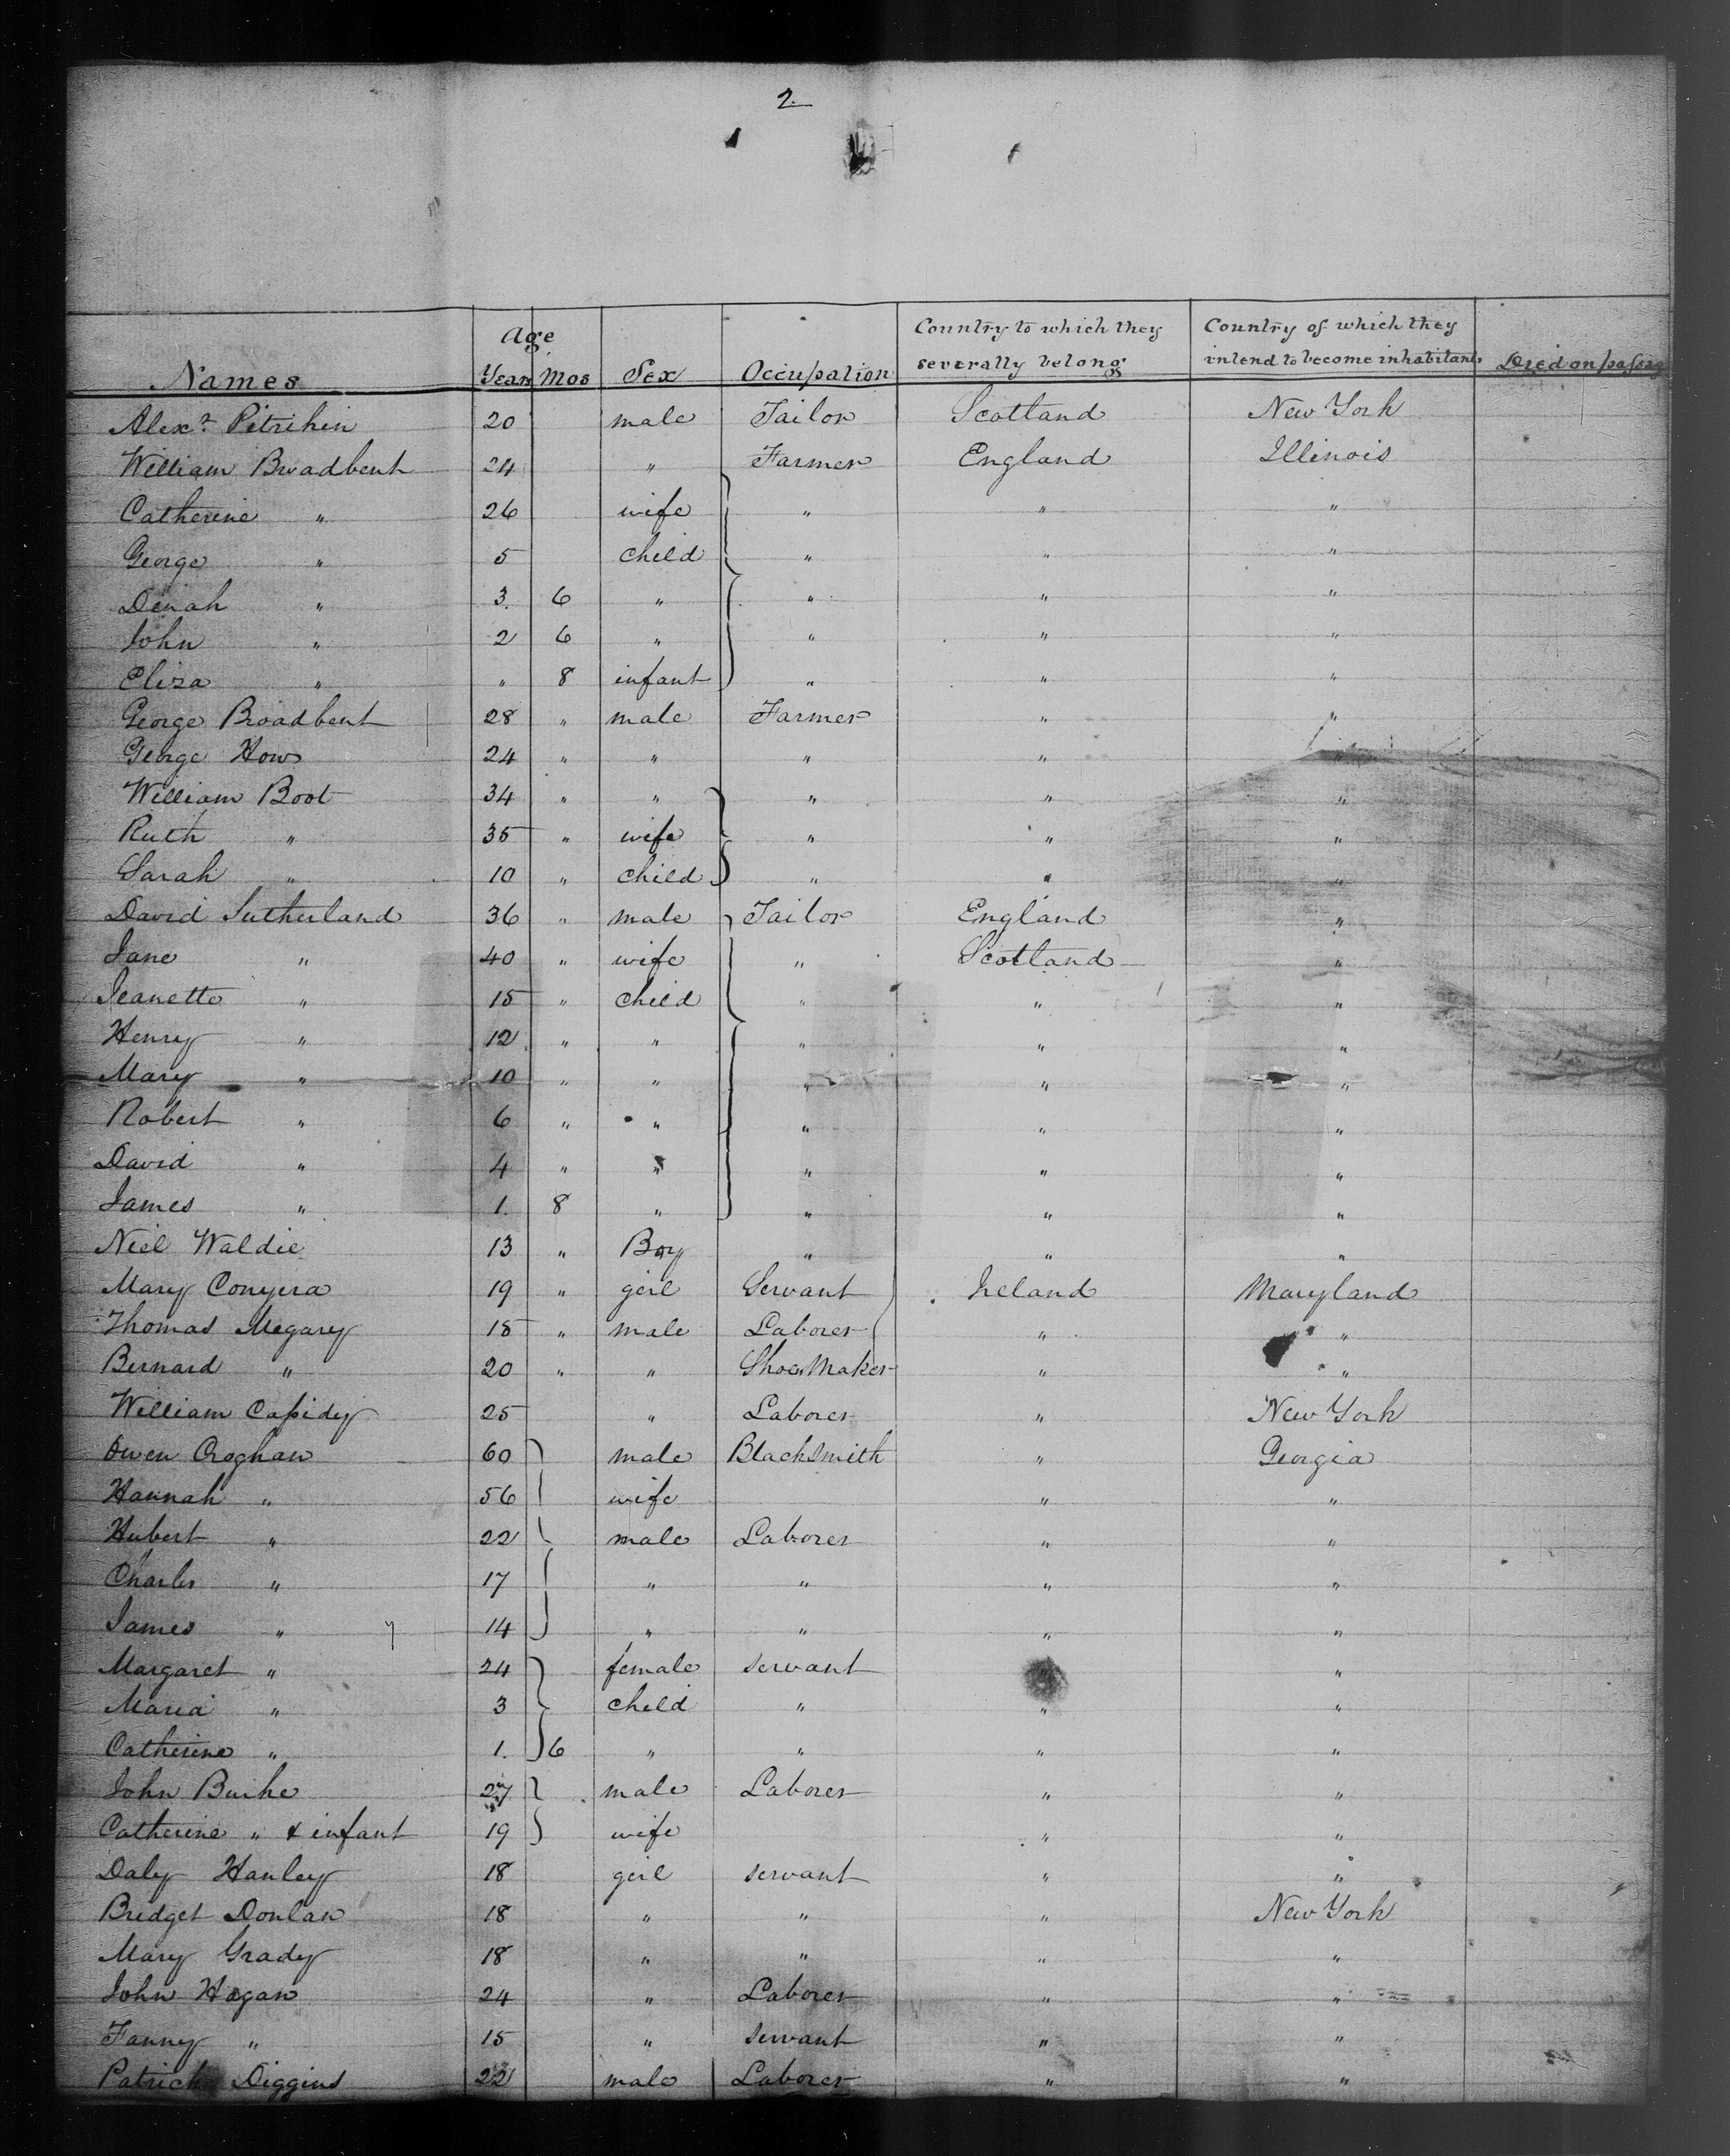 2.
Names Age Years Mos Sex Occupation Country to which they severally belong Country of which they intend to become inhabitants Died on passage
Alexr. Petrikin 20 male Tailor Scotland New York
William Broadbent 24 " Farmer England Illinois
Catherine " 26 wife " " "
George " 5 child " " "
Dinah " 3. 6 " " " "
John " 2 6 " " " "
Eliza " " 8 infant " " "
George Broadbent 28 " male Farmer " "
George Hows 24 " " " " "
William Boot 34 " " " " "
Ruth " 35 " wife " " "
Sarah " 10 " child " " "
David Sutherland 36 " male Tailor England "
Jane " 40 " wife " Scotland "
Jeanette " 15 " child " " "
Henry " 12 " " " " "
Mary " 10 " " " " "
Robert " 6 " " " " "
David " 4 " " " " "
James " 1. 8 " " " "
Niel Waldie 13 " Boy " " "
Mary Conyera 19 " girl Servant Ireland Maryland
Thomas Megary 18 " male Laborer " "
Bernard " 20 " " Shoe Maker " "
William Cassidy 25 " Laborer " New York
Owen Croghan 60 male Blacksmith " Georgia
Hannah " 56 wife " "
Hubert " 22 male Laborer " "
Charles " 17 " " " "
James " 14 " " " "
Margaret " 24 female servant "
Maria " 3 child " " "
Catherine " 1. 6 " " " "
John Burke 27 male Laborer " "
Catherine " & infant 19 wife " "
Daly Hanley 18 girl servant " "
Bridget Donlan 18 " " " New York
Mary Grady 18 " " " "
John Hogan 24 " Laborer " "
Fanny " 15 " servant " "
Patrick Diggins 22 male Laborer " "